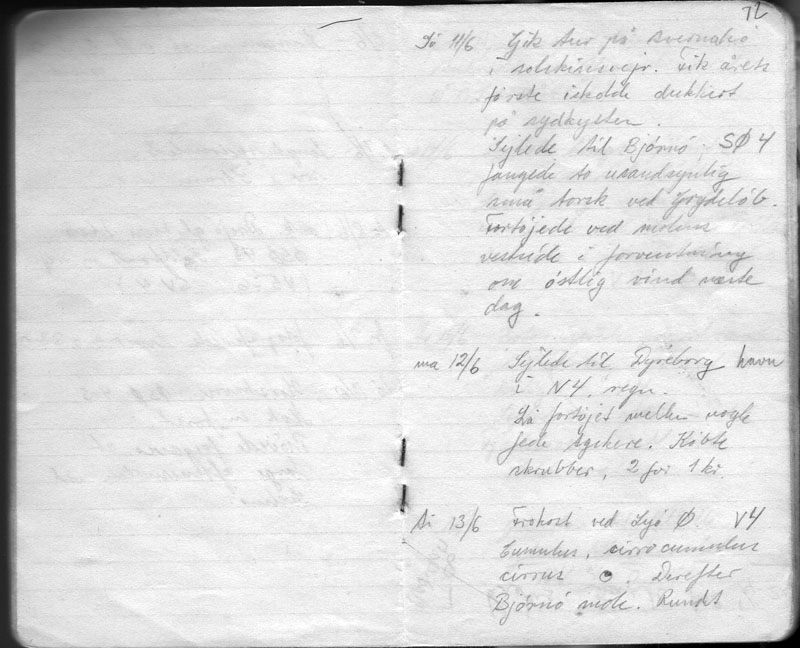 72
Sö 11/6 Gik tur på Avernakö
i solskinsvejr. Fik årets
förste iskolde dukkert
på sydkysten.
Sejlede til Björnö, SØ 4
fangede to usandsynlig
små torsk ved
Fortöjede ved molens
vestside i forventning
om östlig vind næste
dag.
ma 12/6 Sejlede til Dyreborg havn
i N4, regn.
Lå fortöjet mellem nogle
fede Købte
skrubber, 2 for 1 kr.
Ti 13/6 Frokost ved Lyö Ø V4
Cumulus, cirrocumulus
cirrus Derefter
Björnö mole. Rundt